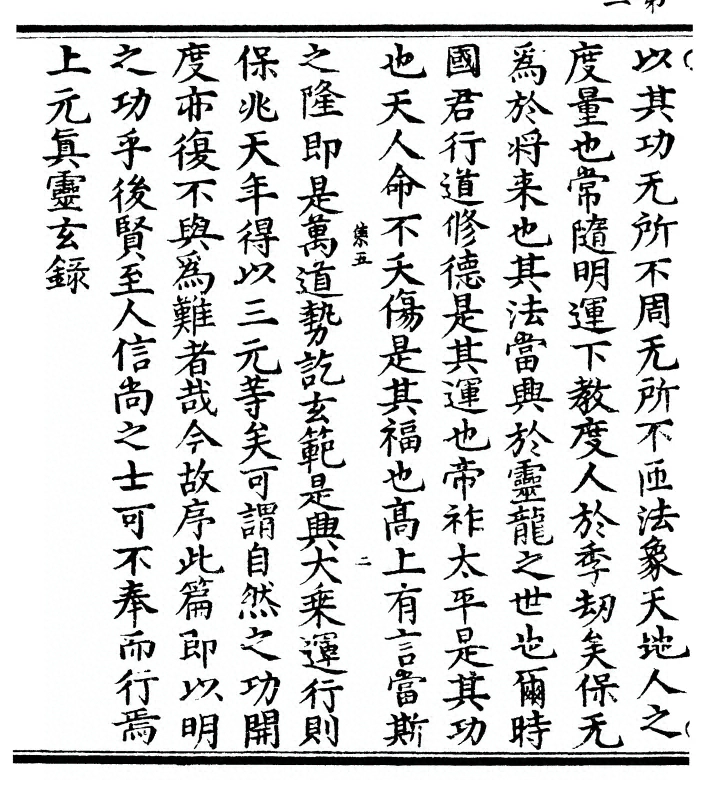 以其功无所不周无所不匝法象天地人之
度量也常隨明運下教度人於季劫矣保无
爲於将来也其法當興於靈龍之世也爾時
國君行道修德是其運也帝祚太平是其功
也天人命不夭傷是其福也髙上有言當斯
二
之隆即是萬道勢訖玄範是興大乗運行則
保兆天年得以三元等矣可謂自然之功開
度亦復不與爲難者哉今故序此篇即以明
之功乎後賢至人信尚之士可不奉而行焉
上元眞靈玄錄